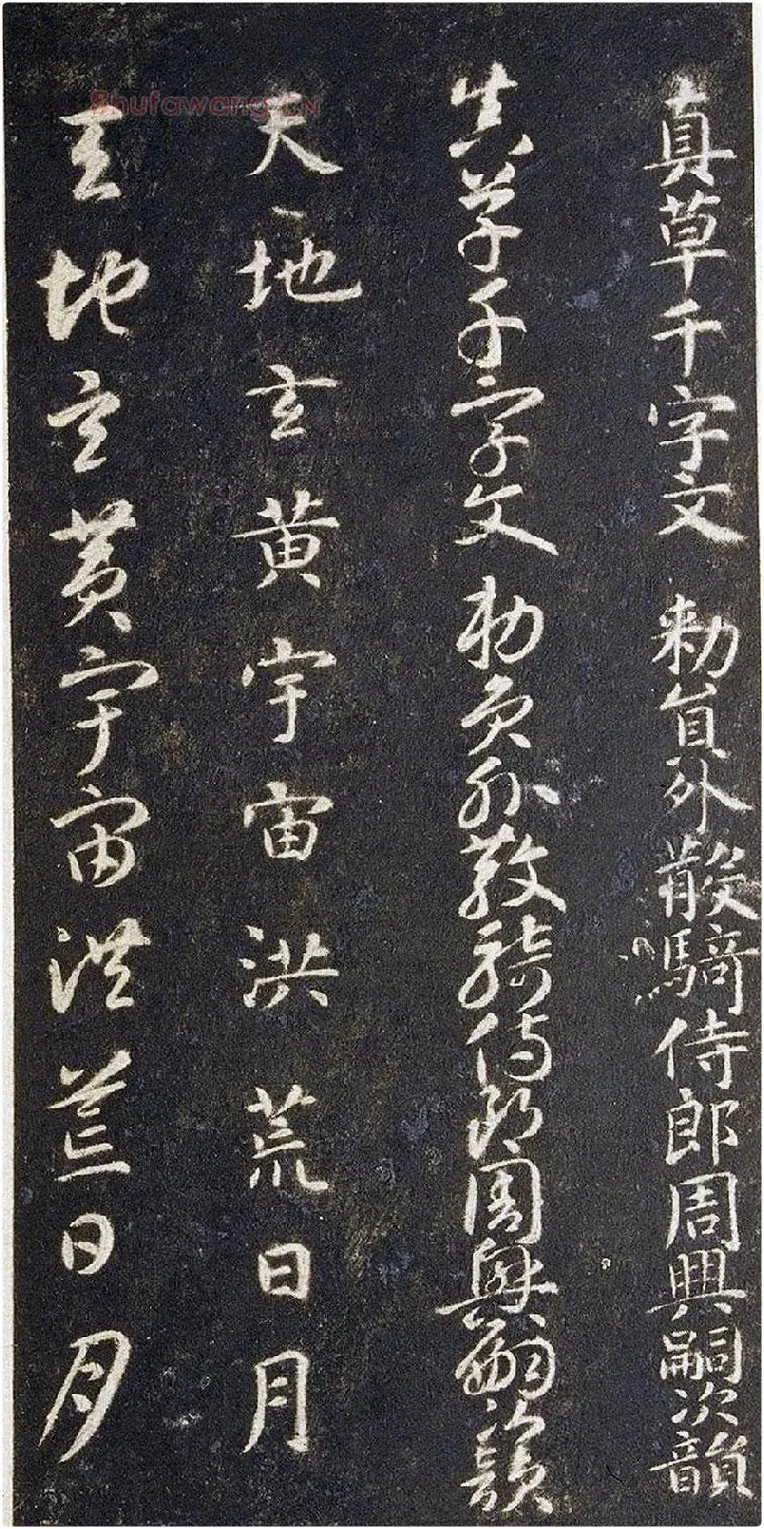 真草千字文 勑員外散騎侍郎周興嗣次韻
真草千字文 勑員外散騎侍郎周興嗣次韻
天地玄黄宇宙洪荒日月
天地玄黄宇宙洪荒日月
Shufawang.CN